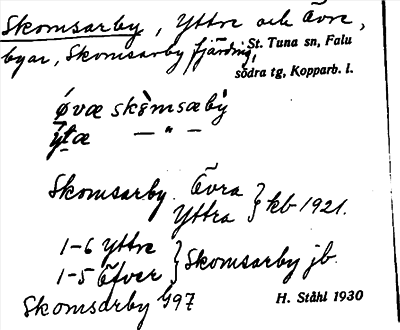 Skomsarby, Yttre och Övre,
byar, Skomsarby fjärding,
St. Tuna sn, Falu
södra tg, Kopparb. l.
ø̨væ skömsæby
ytæ — " —
Skomsarby Övra
Yttra } kb 1921.
1-6 Yttre
1-5 Öfver } Skomsarby jb.
Skomsarby G97
H. Ståhl 1930